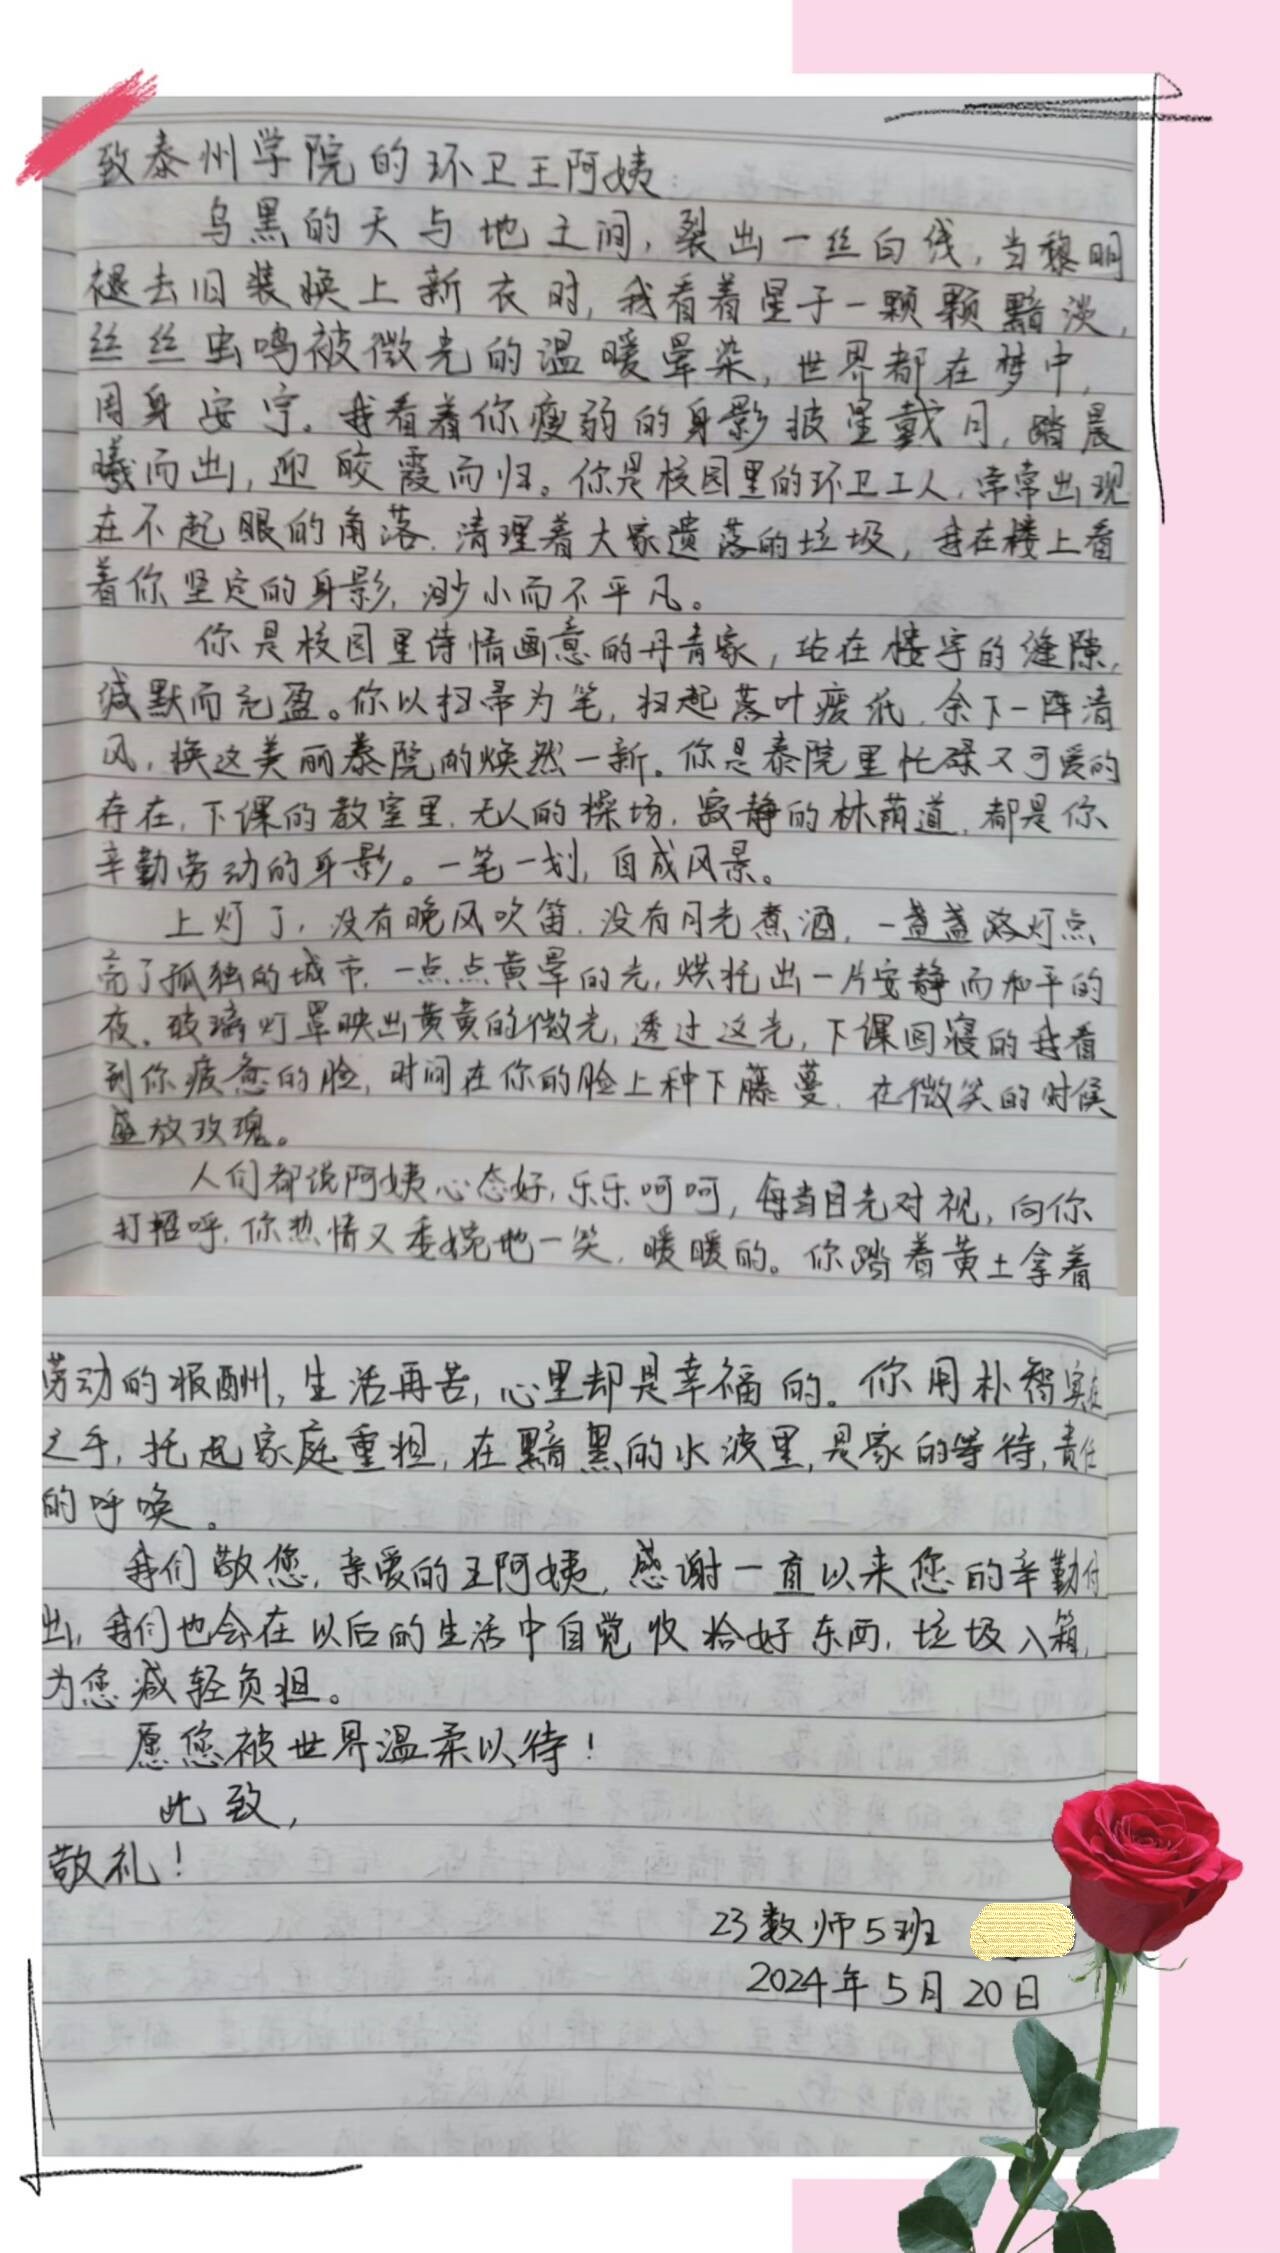 致泰州学院的环卫王阿姨
乌黑的天与地之间，裂出一丝白线，当黎明
褪去旧装换上新衣时，我看着星子一颗颗黯淡，
丝丝虫鸣被微光的温暖晕染，世界都在梦中，
周身安宁。我看着你瘦弱的身影披星戴月，踏晨
曦而出，迎皎霞而归。你是校园里的环卫工人，常常出现
在不起眼的角落，清理着大家遗落的垃圾，我在楼上看
着你坚定的身影，渺小而不平凡。
你是校园里诗情画意的丹青家，站在楼宇的缝隙，
缄默而充盈。你以扫帚为笔，扫起落叶废纸，余下一阵清
风，换这美丽泰院的焕然一新。你是泰院里忙碌又可爱的
存在，下课的教室里，无人的操场，寂静的林荫道，都是你
辛勤劳动的身影。一笔一划，自成风景。
上灯了，没有晚风吹笛，没有月光煮酒，一盏盏路灯点
亮了孤独的城市，一点点黄晕的光，烘托出一片安静而和平的
夜。玻璃灯罩映出黄黄的微光，透过这光，下课回寝的我看
到你疲惫的脸，时间在你的脸上种下藤蔓，在微笑的时候
盛放玫瑰。
人们都说阿姨心态好，乐乐呵呵，每当目光对视，向你
打招呼，你热情又委婉地一笑，暖暖的。你踏着黄土拿着
劳动的报酬，生活再苦，心里却是幸福的。你用朴智实在
之手，托起家庭重担，在黯黑的水波里，是家的等待，责任
的呼唤。
我们敬您，亲爱的王阿姨，感谢一直以来您的辛勤付
出，我们也会在以后的生活中自觉收拾好东西，垃圾入箱，
为您减轻负担。
愿您被世界温柔以待！
此致，
敬礼！
23数师5班
2024年5月20日